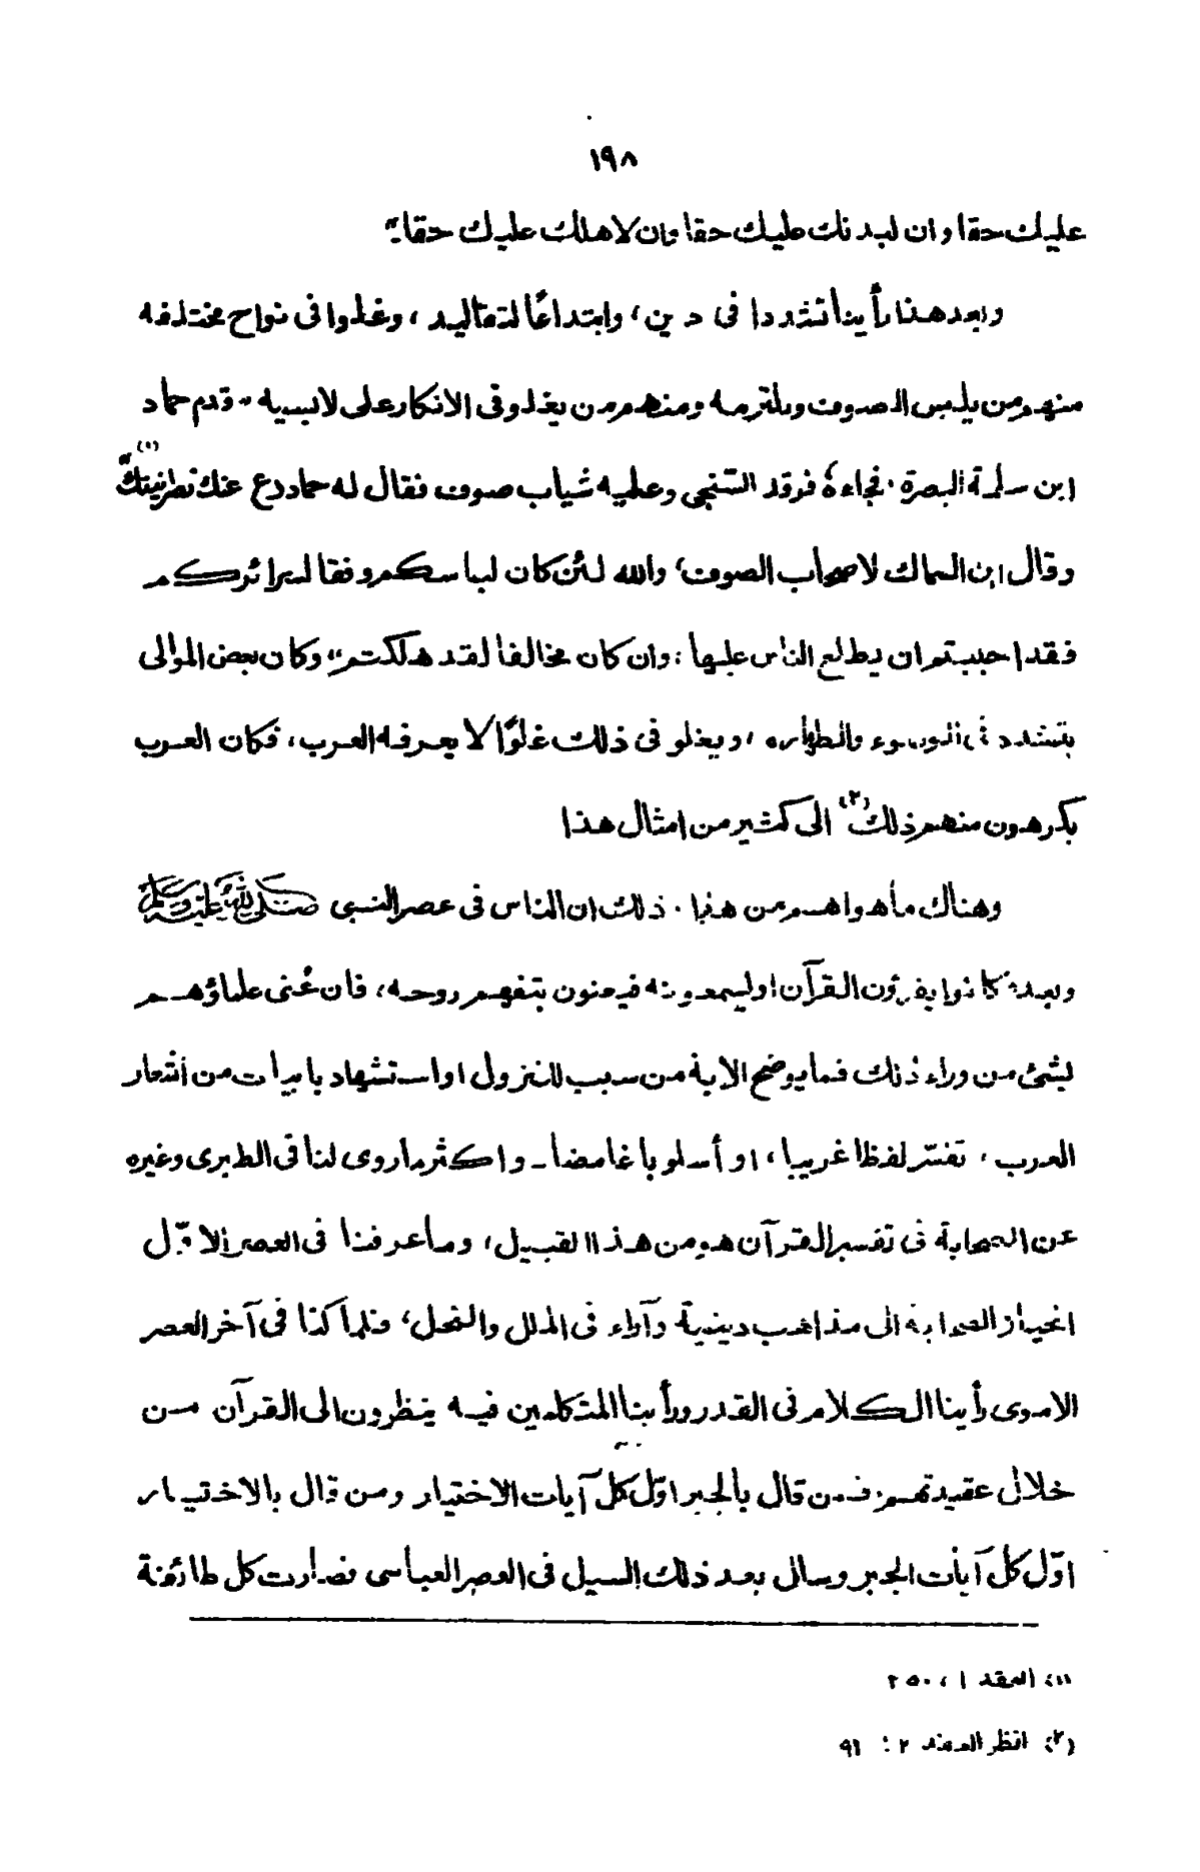 ١٩٨
عليك حقا وان لبدنك عليك حقا وان لاهلك عليك حقا"
وبعد هذا رأينا تشددا فى دين، وابتداعًا لتقاليد، وغلوا فى نواح مختلفه
منهم من يلبس الصوف ويلتزمه ومنهم من يغلو فى الانكار على لابسيه "قدم حماد
ابن سلمة البصرة، فجاءهٗ فرقد السنجى وعليه ثياب صوف فقال له حماد دع عنك نصرانيتك"(١)
وقال ابن السماك لاصحاب الصوف، والله لئن كان لباسكم وفقا لسرائركم
فقد احببتم ان يطلع الناس عليها، وان كان مخالفا لقد هلكتم" وكان بعض الموالى
يتشدد فى الوضوء والطهاره، ويغلو فى ذلك غلوًا لا يعرفه العرب، فكان العرب
يكرهون منهم ذلك(٢) الى كثير من امثال هذا
وهناك ما هو اهم من هذا. ذلك ان الناس فى عصر النبى صلى الله عليه وسلم
وبعدهٗ كانوا يقرؤن القرآن او ليسمعونه فيعنون بتفهم روحه، فان عُنى علماؤهم
لبشئ من وراء ذلك فما يوضح الاية من سبب للنزول او استشهاد بابيات من اشعار
العرب، تفسّر لفظا غريبا، او أسلوبا غامضا - واكثر ما روى لنا فى الطبرى وغيره
عن الصحابة فى تفسير القرآن هو من هذا القبيل، وما عرفنا فى العصر الاوّل
انحياز الصحابة الى مذاهب دينية وآراء فى الملل والنحل، فلما كنا فى آخر العصر
الاموى رأينا الكلام فى القدر ورأينا المتكلمين فيه ينظرون الى القرآن من
خلال عقيدتهم، فمن قال بالجبر اوّل كل آيات الاختيار ومن قال بالاختيار
اوّل كل آيات الجبر وسال بعد ذلك السيل فى العصر العباسى فصارت كل طائفة
(١) العقد ١، ٢٥٠
(٢) انظر العقد ٢ : ٩١